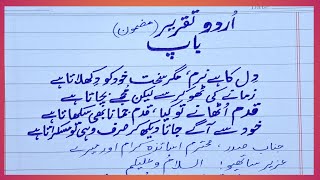 اُردو تقریر (مضمون)
باپ
دِل کا ہے نرم، مگر سخت خود کو دکھلاتا ہے
زمانے کی ٹھوکر سے لیکن مجھے بچاتا ہے
قدم اُٹھانے تو کیا، قدم جمانا بھی سکھاتا ہے
خود سے آگے جاتا دیکھ کر صرف وہی تو مسکراتا ہے
جناب صدر، محترم اساتذہ کرام اور میرے
عزیز ساتھیو! السلام وعلیکم